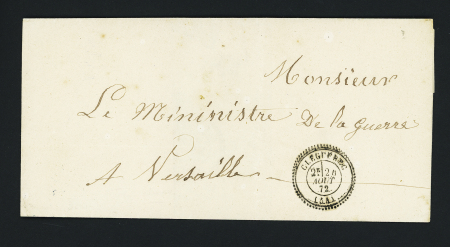 Monsieur
Le Mininistre De la guerre
A Versaille
CLEGUEREC
2E
AOUT
72